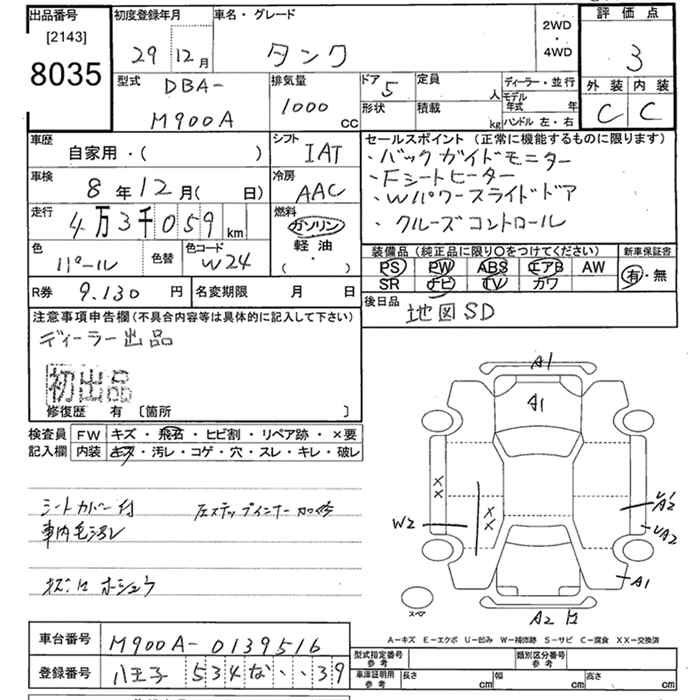 出品番号
[2143]
8035
初度登録年月
29 12月
車名・グレード
タンク
2WD
・
4WD
評価点
3
外装 内装
C C
型式
DBA-
M900A
排気量
1000 cc
ドア 5
定員 人
形状
積載 kg
ディーラー・並行
モデル年式 年
ハンドル 左・右
車歴
自家用・( )
シフト
IAT
車検
8年12月( 日)
冷房
AAC
走行
4万3千059 km
燃料
ガソリン
軽油
( ・ )
色
パール
色替
色コード
W24
R券 9.130 円
名変期限 月 日
セールスポイント (正常に機能するものに限ります)
・バックガイドモニター
・Fシートヒーター
・Wパワースライドドア
・クルーズコントロール
装備品 (純正品に限り○をつけてください)
PS PW ABS エアB AW
SR ナビ TV カワ
新車保証書
有・無
後日品
地図SD
注意事項申告欄(不具合内容等は具体的に記入して下さい)
ディーラー出品
初出品
修復歴 有 [箇所 ]
検査員記入欄
FW キズ・飛石・ヒビ割・リペア跡・×要
内装 キズ・汚レ・コゲ・穴・スレ・キレ・破レ
シートカバー付
左ステップインナー加修
車内毛汚レ
A1
A1
XX
W2
XX
A2
A2
A1
スペア
A2
A-キズ E-エクボ U-凹み W-補修跡 S-サビ C-腐食 XX-交換済
車台番号 M900A-0139516
登録番号 八王子 534 な ・・39
型式指定番号
参考
類別区分番号
参考
車庫証明用
参考
長さ cm
幅 cm
高さ cm